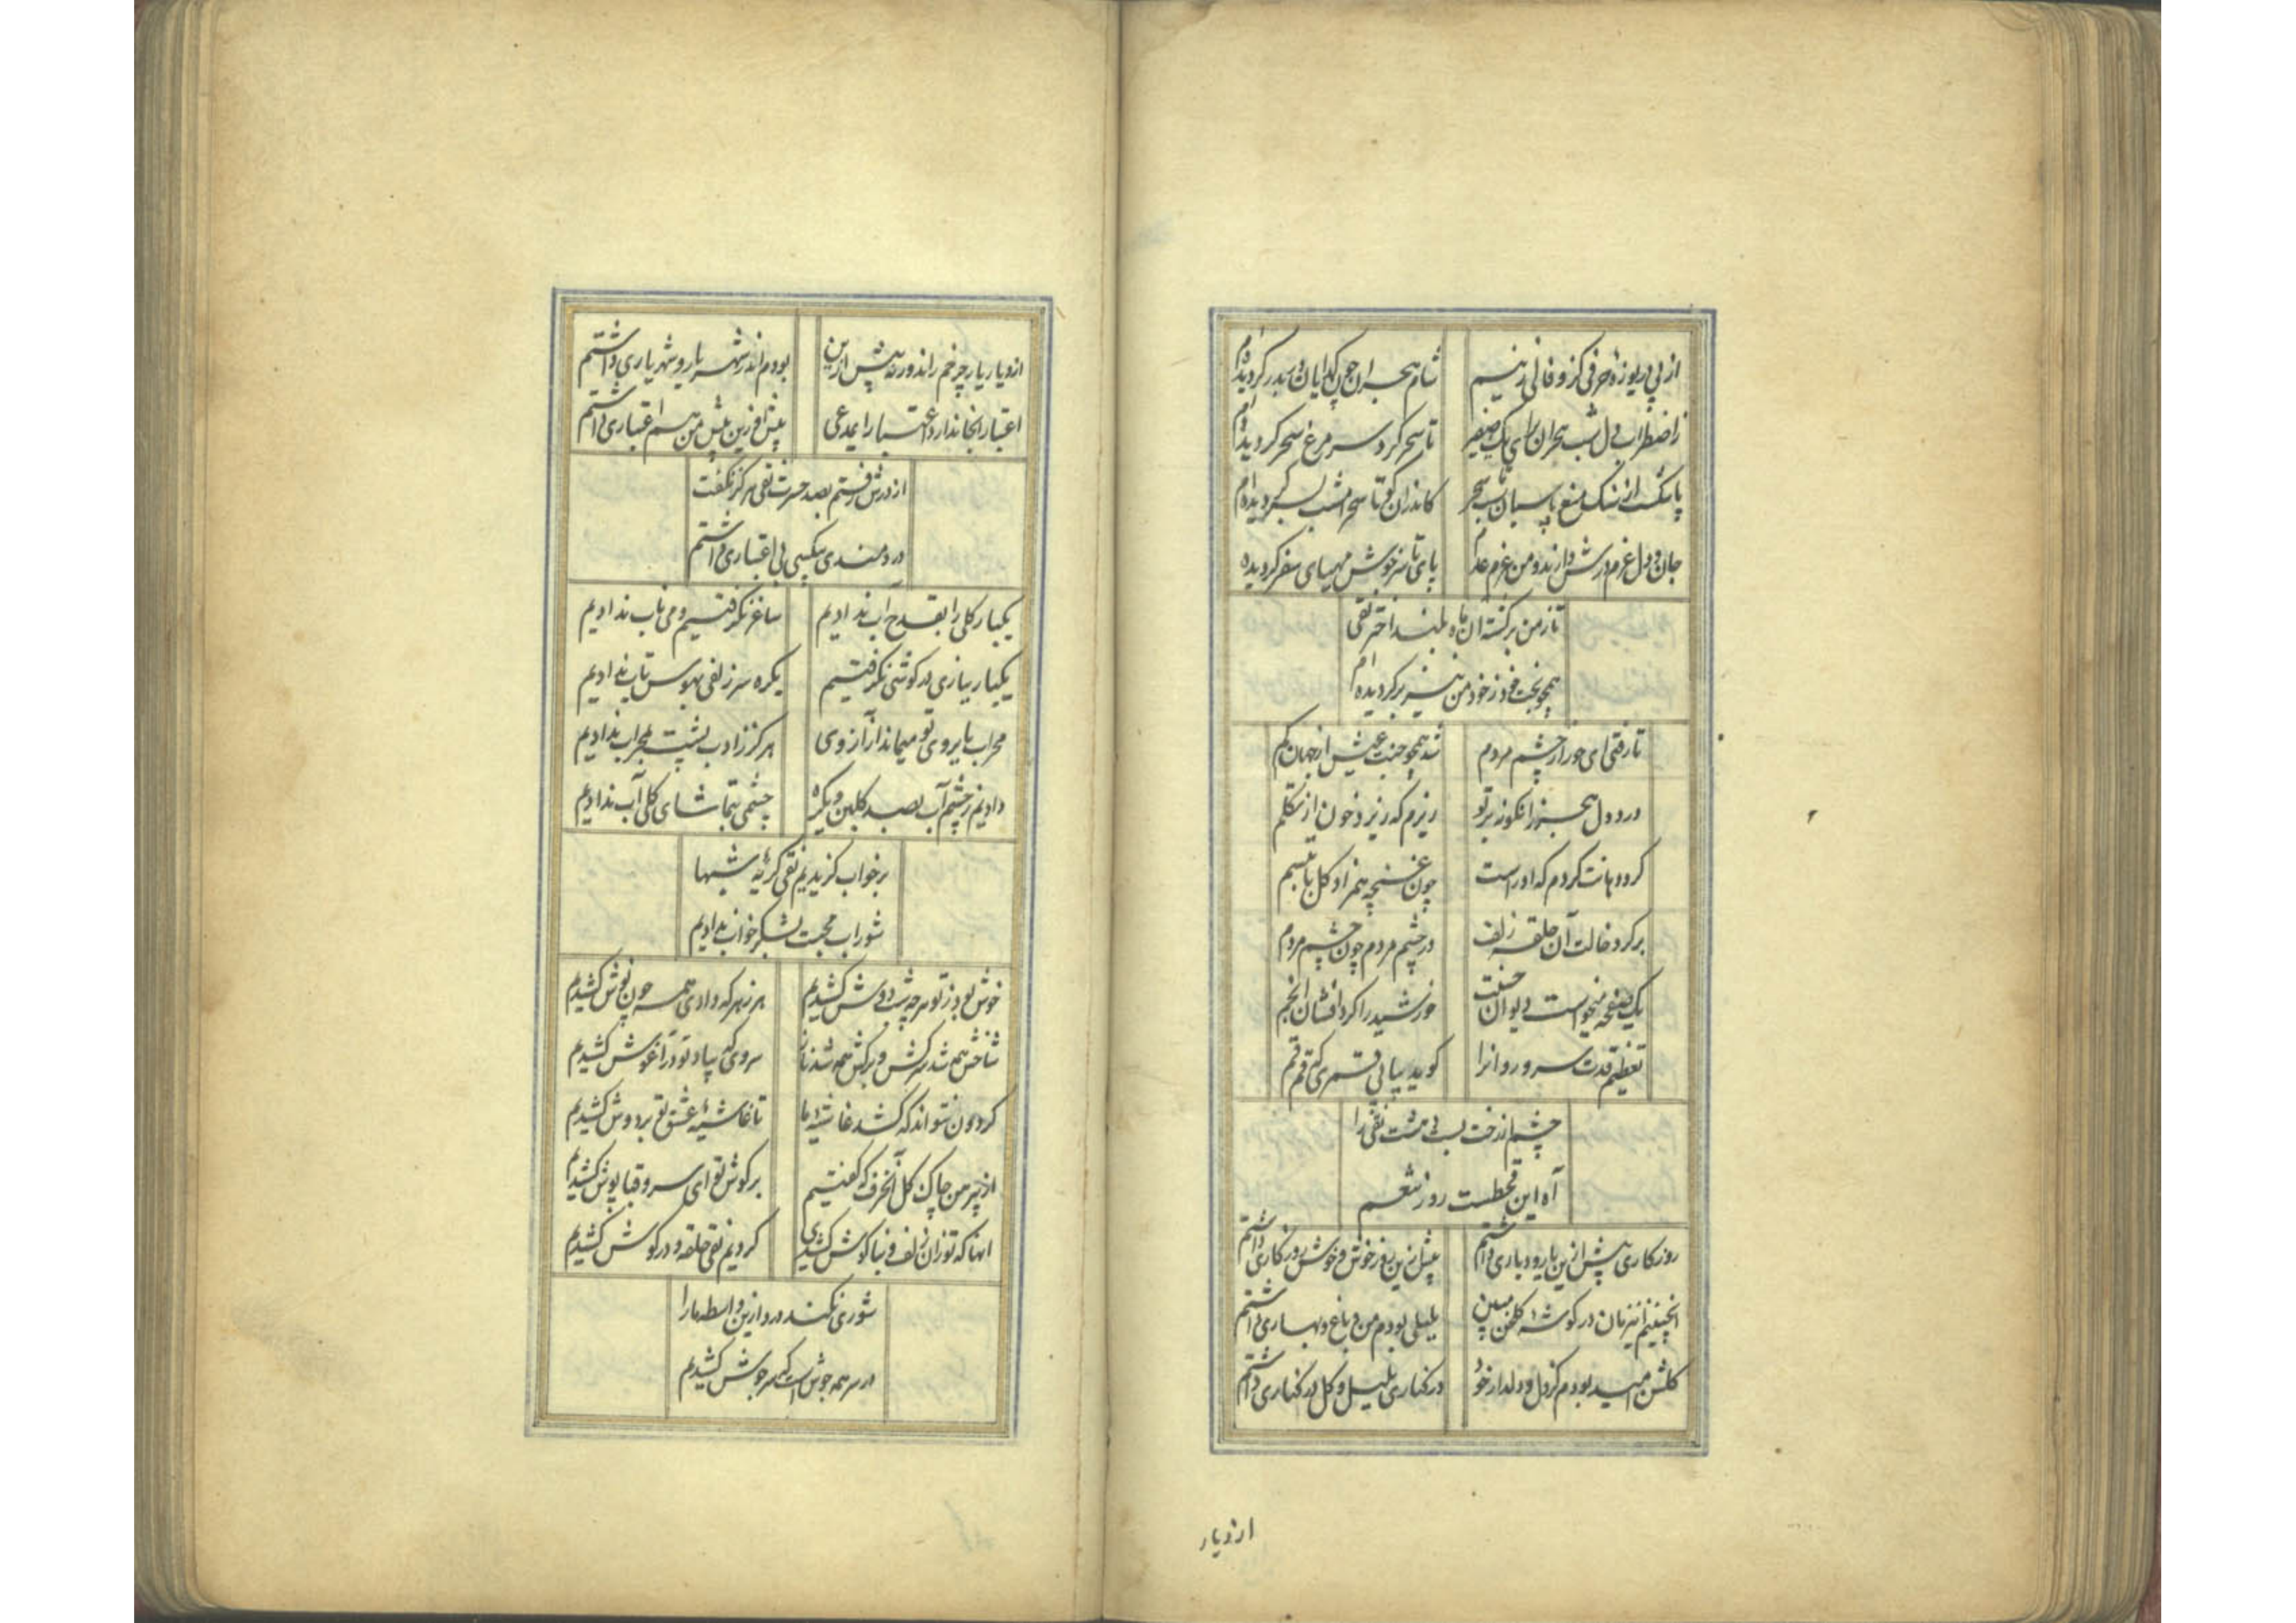 از پی دریوزهٔ حرفی کزو فالی زنیم
شام هجران چون گدایان دربدر گردیده‌ام
ز اضطراب دل شب هجران برای یک صفیر
تا سحر گرد سر مرغ سحر گردیده‌ام
پا شکست از سنگ منع پاسبان تا سحر
کاندران کو تا سحر امشب بسر گردیده‌ام
جان و دل عزم درش دارند و من عزم عدم
پای تا سر خویش مهیای سفر گردیده
تا ز من برگشته آن ماه بلند اختر نقی
همچو بخت خود ز خود من نیز برگردیده‌ام
تا رفتی ای حور از چشم مردم
شد همچو جنت عیش از جهان گم
درد دل هجر زانگونه بر تو
ریزم که ریزد خون از تکلم
گرد دهانت گردم که او راست
چون غنچه همزاد گل با تبسم
بر گرد خالت آن حلقه زلف
در چشم مردم چون چشم مردم
یک صفحه میخواست دیوان حسنت
خورشید را کرد افشان انجم
تعظیم قدت سرو روانرا
گوید بپائی قمری که قم قم
چشم از رخت بی مشت نقی را
آه این قحطست روز تنعم
روزکاری پیش ازین یار و دیاری داشتم
پیش ازین روز خوش و خوش روزکاری داشتم
اینچنینم این زمان در گوشهٔ گلخن مبین
بلبلی بودم من و باغ و بهاری داشتم
گلشن امید بودم کز دل و دلدار خود
در کناری بلبل و گل در کناری داشتم
از دیار
از دیار یار چرخم راند ورنه پیش ازین
بودم اندر شهر یار و شهریاری داشتم
اعتبار اینجا ندارد اعتبار ای مدعی
پیش ازین پیش من هم اعتباری داشتم
از درش رفتم بصد حسرت نقی هرگز نگفت
دردمندی بیکسی بی اعتباری داشتم
یکبار گلی را بقدح آب ندادیم
ساغر نگرفتیم و می ناب ندادیم
یکبار نیازی در گوشی نگرفتیم
یکره سر زلفی بهوس تاب ندادیم
محراب بابروی تو میماند از آنروی
هرگز ز ادب پشت بمحراب ندادیم
دادیم ز چشم آب بصد گلبن و یکره
چشمی بتماشای گلی آب ندادیم
بر خواب گزیدیم نقی گریهٔ شبها
شوراب محبت بشکر خواب ندادیم
خوش بود ز تو هر چه شب دوش کشیدم
هر زهر که دادی همه چون نوش کشیدم
شاخش همه شد سرکش و برگش همه شد ناز
سروی که بیاد تو در آغوش کشیدم
گردون نتواند که کشد غاشیهٔ ما
تا غاشیهٔ عشق تو بر دوش کشیدم
از پیرهن چاک گل آنحرف که گفتیم
بر گوش تو ای سرو قباپوش کشیدم
آنها که تو زان زلف و بناگوش کشیدی
کردیم نقی حلقه و در گوش کشیدم
شوری نکند درد ازین واسطه ما را
در سر همه جوش است که سرجوش کشیدم